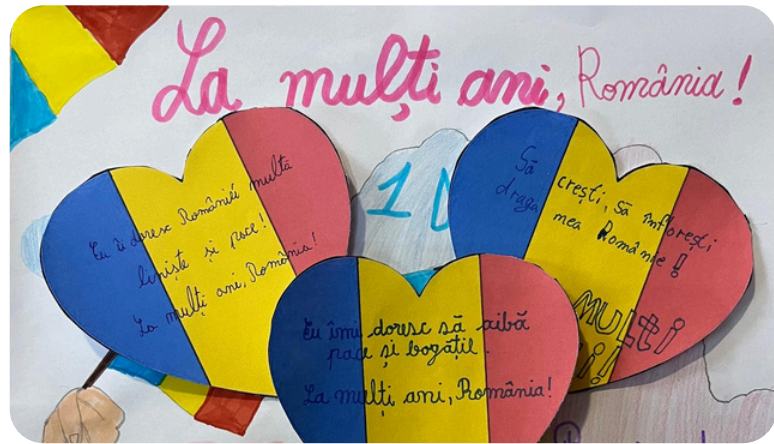 La mulți ani, România!
1 D
Eu îi doresc României multă
liniște și pace!
La mulți ani, România!
Să crești, să înflorești
draga mea Românie!
MULTI
Eu îmi doresc să aibă
pace și bogății.
La mulți ani, România!